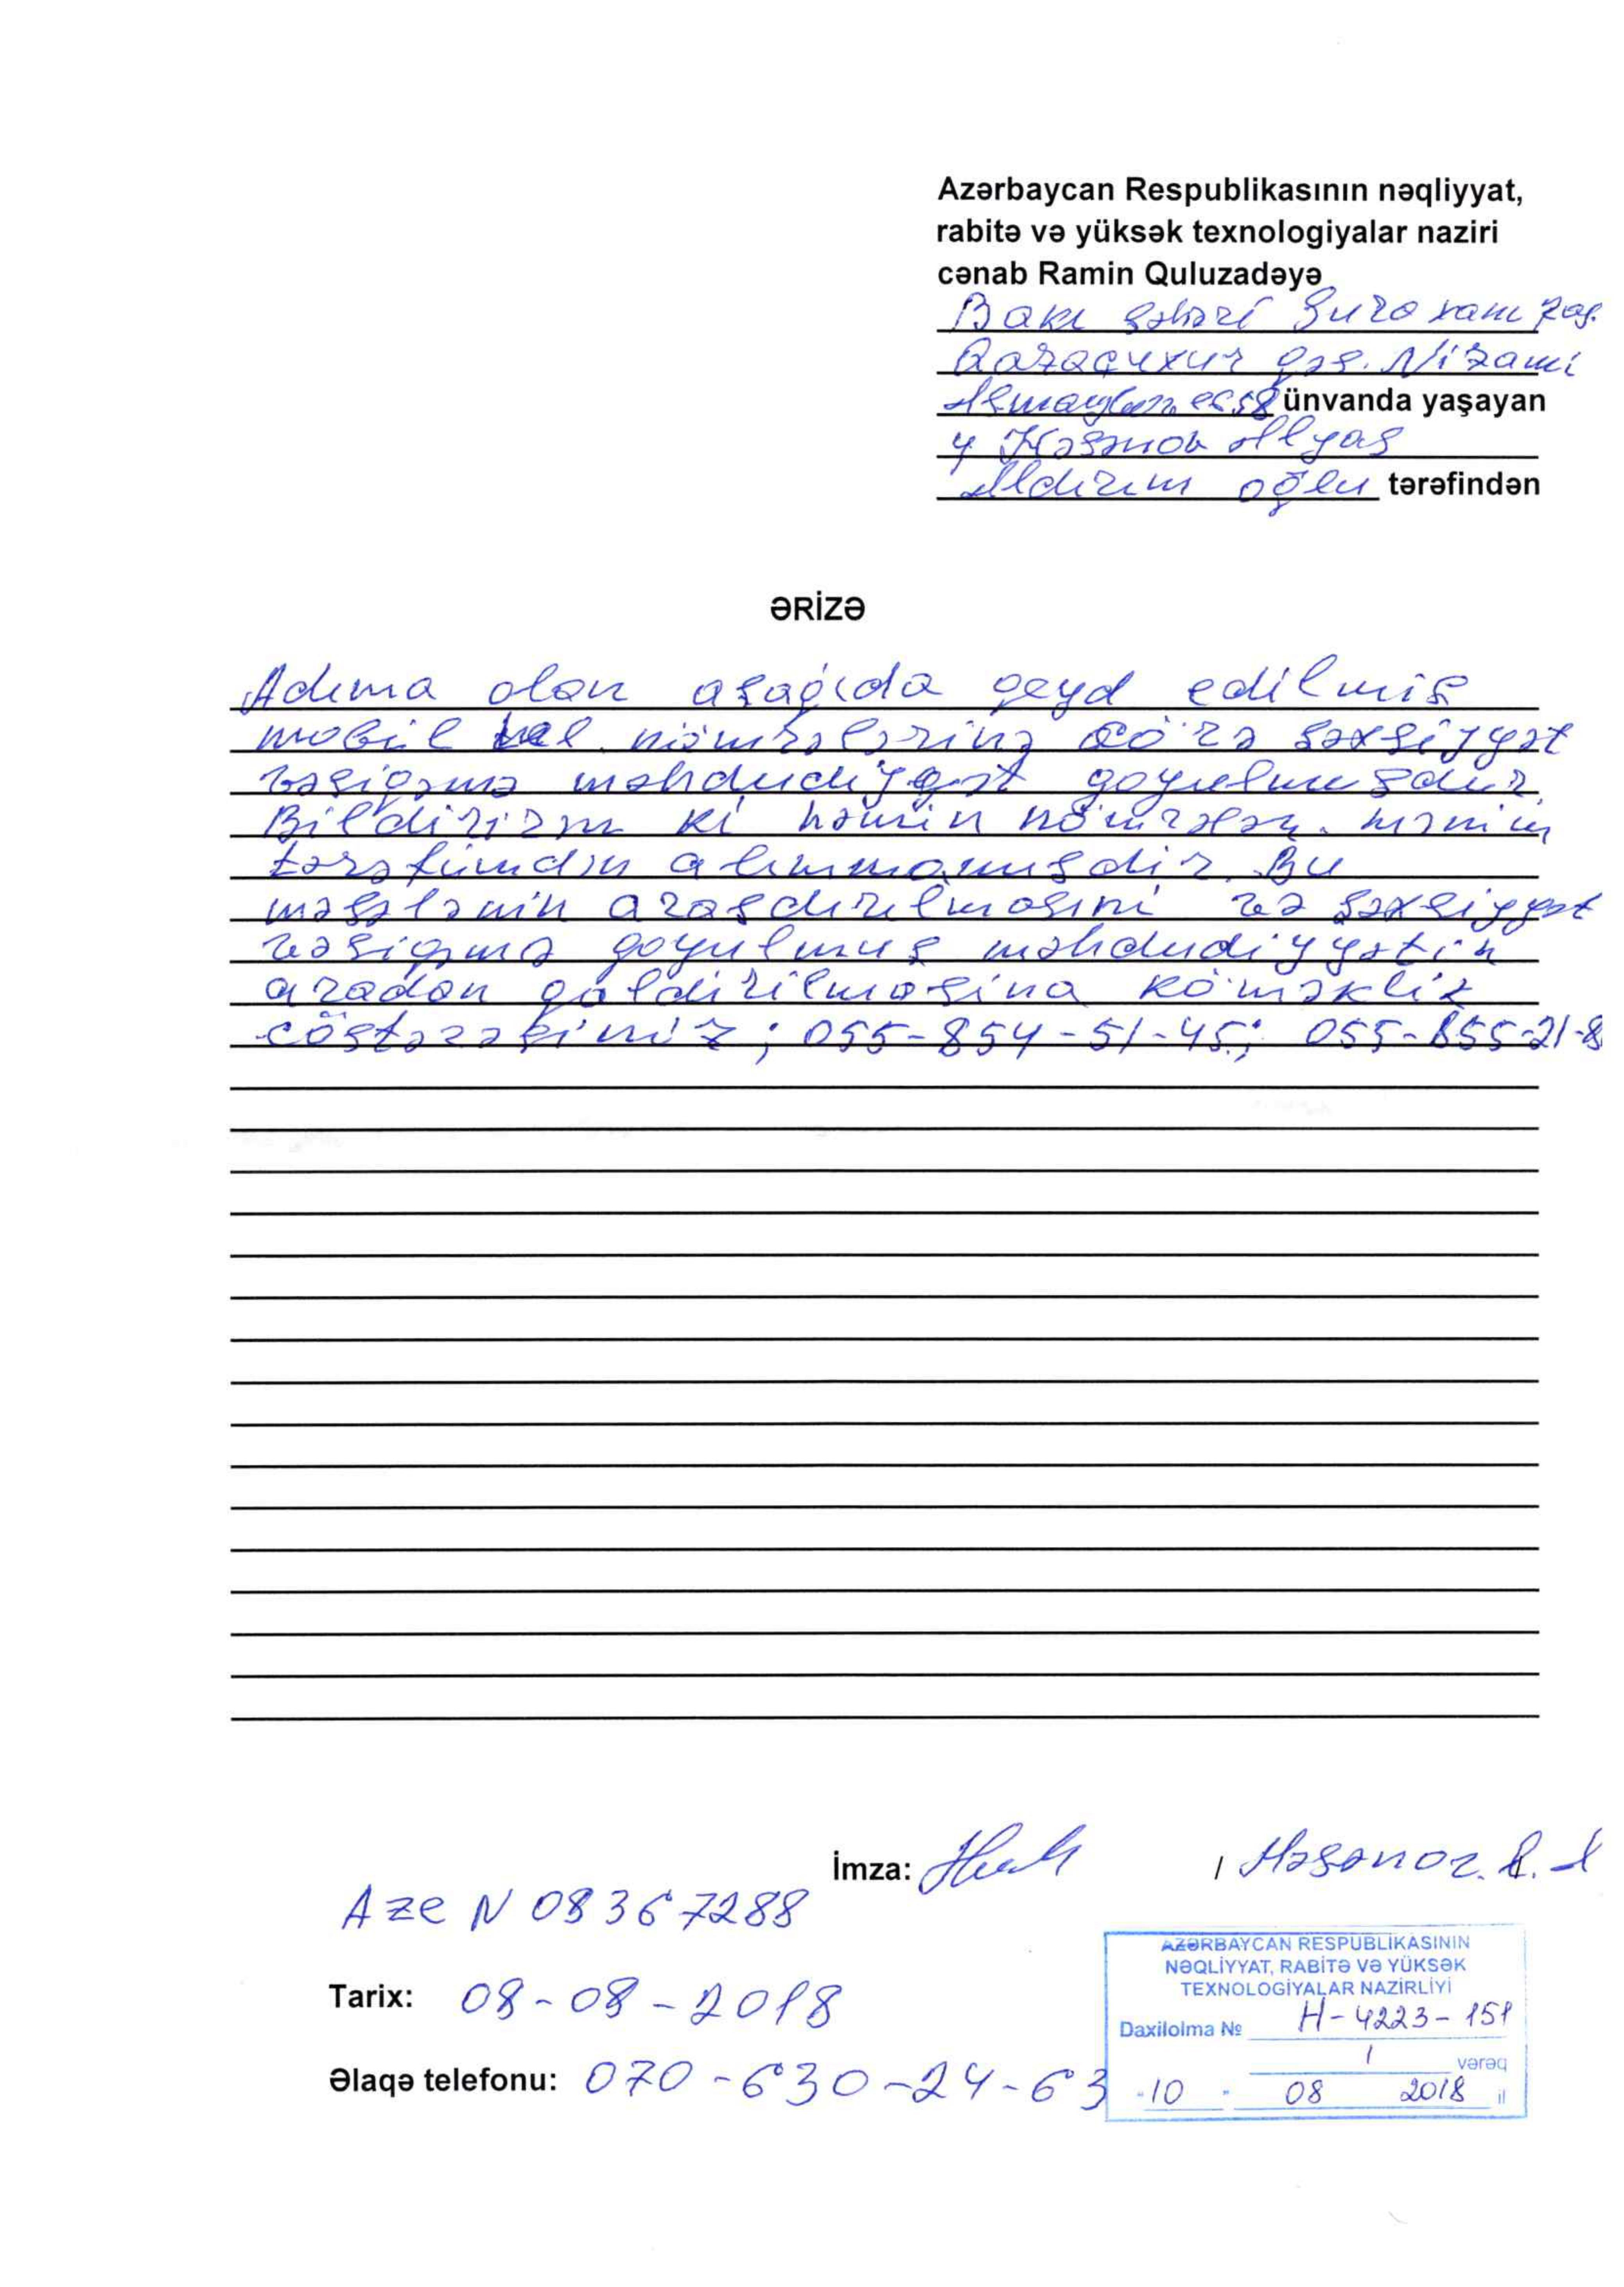 Azərbaycan Respublikasının nəqliyyat,
rabitə və yüksək texnologiyalar naziri
cənab Ramin Quluzadəyə
Bakı şəhəri Suraxanı ray.
Qaraçuxur qəs. Nizami
ünvanda yaşayan
Həsənov Ilyas
Ildırım oğlu tərəfindən
ƏRİZƏ
Adıma olan aşağıda qeyd edilmiş
mobil nömrələrinə görə şəxsiyyət
vəsiqəmə məhdudiyyət qoyulmuşdur.
Bildirirəm ki həmin nömrələr mənim
tərəfimdən alınmamışdır. Bu
məsələnin araşdırılmasını və şəxsiyyət
vəsiqəmə qoyulmuş məhdudiyyətin
aradan qaldırılmasına köməklik
göstərəsiniz; 055-854-51-45; 055-855-21-8
İmza: / Həsənov. I. I
Aze N 08367288
Tarix: 08-08-2018
Əlaqə telefonu: 070-630-24-63
AZƏRBAYCAN RESPUBLİKASININ
NƏQLİYYAT, RABİTƏ VƏ YÜKSƏK
TEXNOLOGİYALAR NAZİRLİYİ
Daxilolma № H-4223-151
1 vərəq
10 08 2018 il